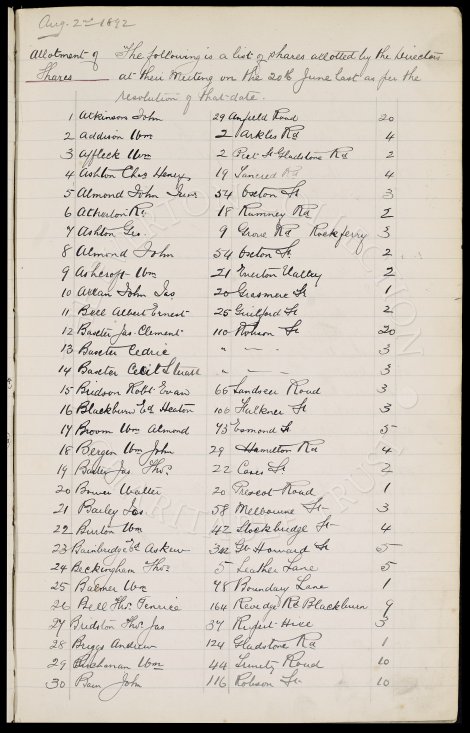 Aug. 2nd 1892
Allotment of Shares
The following is a list of shares allotted by the Directors
at their Meeting on the 20th June last as per the
resolution of that date.
1 Atkinson John 29 Anfield Road 20
2 Addison Wm 2 Arkles Rd 4
3 Affleck Wm 2 Gladstone Rd 2
4 Ashton Chas Henry 19 Tancred Rd 4
5 Almond John 54 Oxton St 3
6 Atherton 18 Rumney Rd 2
7 Ashton Geo. 9 Grove Rd Rockferry 3
8 Almond John 54 Oxton St. 2
9 Ashcroft Wm 21 Everton Valley 2
10 John Jas 20 Grasmere St 1
11 Bell Albert Ernest 25 Guildford St 2
12 Baxter Jas. Clement 110 Robson St 20
13 Baxter Cedric " — " — 3
14 Baxter Cecil Stuart " — " — 3
15 Bridson Robt Evan 66 Landseer Road 3
16 Blackburn Ed Heaton 106 Falkner St 3
17 Broom Wm Almond 73 Esmond St 5
18 Bergen Wm John 29 Hamilton Rd 4
19 Jas Thos. 22 Cases St 2
20 Bower Walter 20 Prescot Road 1
21 Bailey Jas. 58 Melbourne St 3
22 Burton Wm 42 Stockbridge St 4
23 Bainbridge Ed Askew Gt Howard St 5
24 Beckingham Thos 5 Leather Lane 5
25 Balmer Wm 78 Boundary Lane 1
26 Bell Thos. Fenwick 164 Revidge Rd Blackburn 9
27 Bridston Thos. Jas 37 Rupert Hill 3
28 Briggs Andrew 124 Gladstone Rd 1
29 Buchanan Wm 44 Trinity Road 10
30 Bain John 116 Robson St. 10